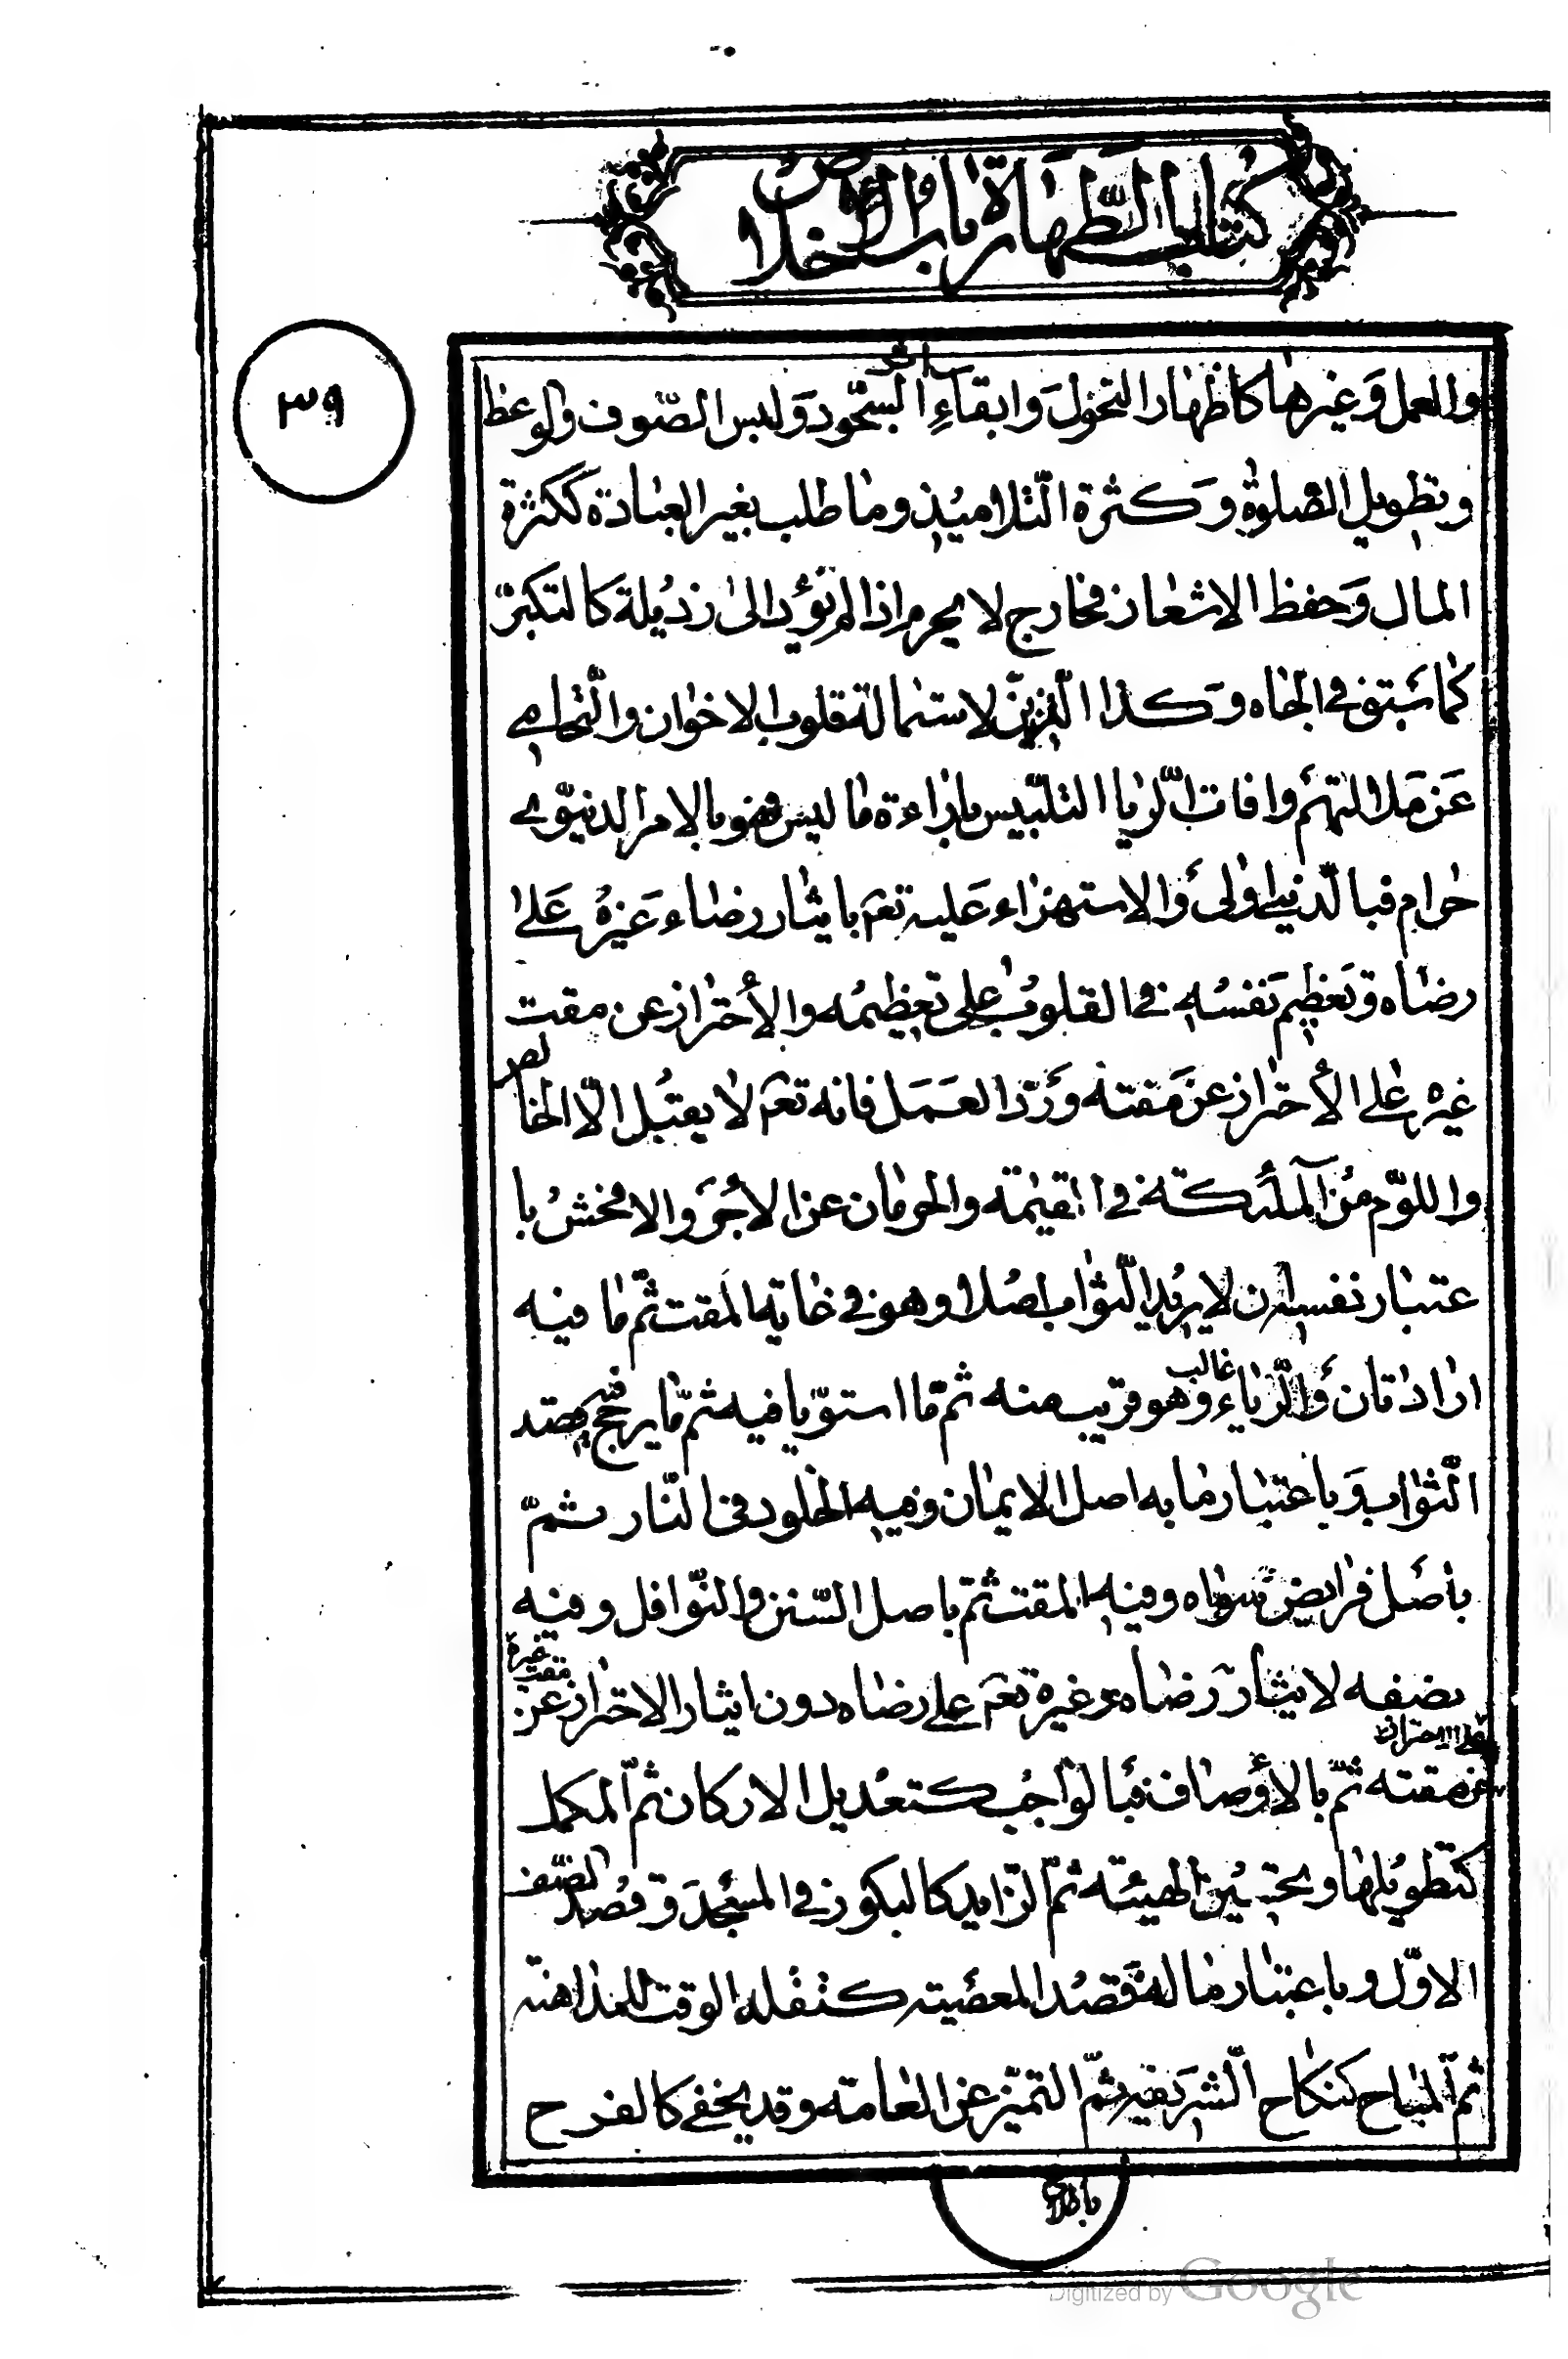 كتاب الطهارة باب الاخلاص
٣٩
والعمل وغيرها كاظهار النحول وابقاء اثر السجود ولبس الصوف والوعظ
وتطويل الصلوة وكثرة التلاميذ وما طلب بغير العبادة ككثرة
المال وحفظ الاشعار فخارج لا يحرم اذا لم تؤد الى رذيلة كالتكبر
كما سبق في الجاه وكذا التزين لاستمالة قلوب الاخوان والتحامي
عن ملالتهم وافات الريا التلبيس باراءة ما ليس وهو بالامر الدنيوي
حرام فبالديني اولى والاستهزاء عليه تعم بايثار رضاء غيره على
رضاه وتعظيم نفسه في القلوب على تعظيمه والاحتراز عن مقت
غيره على الاحتراز عن مقته ورد العمل فانه تعم لا يقبل الا الخالص
واللوم من الملئكة في القيمة والحرمان عن الاجر والافحش با
عتبار نفسه ان لا يريد الثواب اصلا وهو في غاية المقت ثم ما فيه
ارادتان والرياء غالب وهو قريب منه ثم ما استويا فيه ثم ما يرجح فيه قصد
الثواب وباعتبار ما به اصل الايمان وفيه الخلود في النار ثم
باصل فرايض سواه وفيه المقت ثم باصل السنن والنوافل وفيه
نصفه لايثار رضاء غيره تعم على رضاه دون ايثار الاحتراز عن مقت غيره
على الاحتراز عن مقته ثم بالاوصاف فبالواجب كتعديل الاركان ثم المكمل
كتطويلها وتحسين الهيئة ثم الزايد كالبكور في المسجد وقصد الصف
الاول وباعتبار ما له فقصد المعصية كتقله الوقت للمداهنة
ثم المباح كنكاح الشريفة ثم التميز عن العامة وقد يخفى كالفرح
Digitized by Google